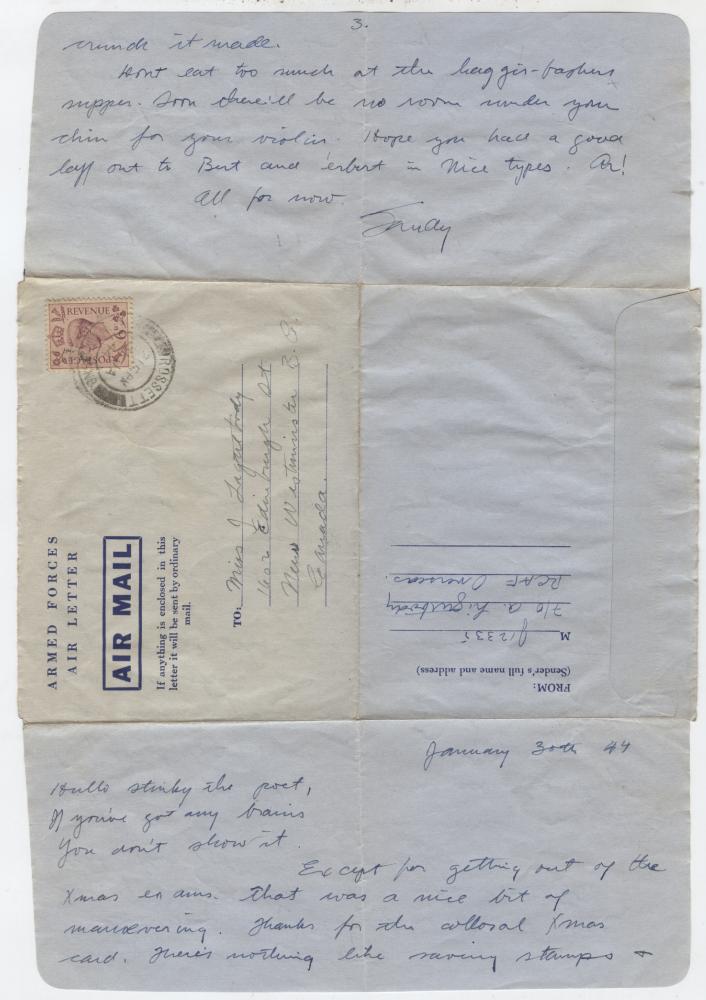 3.
crunch it made.
Dont eat too much at the haggis-bashers
supper. Soon there'll be no room under your
chin for your violin. Hope you had a good
laff out to Bert and 'erbert in Nice types. Ar!
All for now.
Sandy
REVENUE
POSTAGE
ROSSETT
ARMED FORCES
AIR LETTER
AIR MAIL
If anything is enclosed in this
letter it will be sent by ordinary
mail.
TO: Miss J Lightbody
Edinburgh St
New Westminster B.C.
Canada.
FROM:
(Sender's full name and address)
M J12335
F/O A. Lightbody
RCAF Overseas.
January 30th 44
Hullo stinky the poet,
If you've got any brains
You don't show it.
Except for getting out of the
Xmas exams. That was a nice bit of
manoevering. Thanks for the collosal Xmas
card. There's nothing like saving stamps &